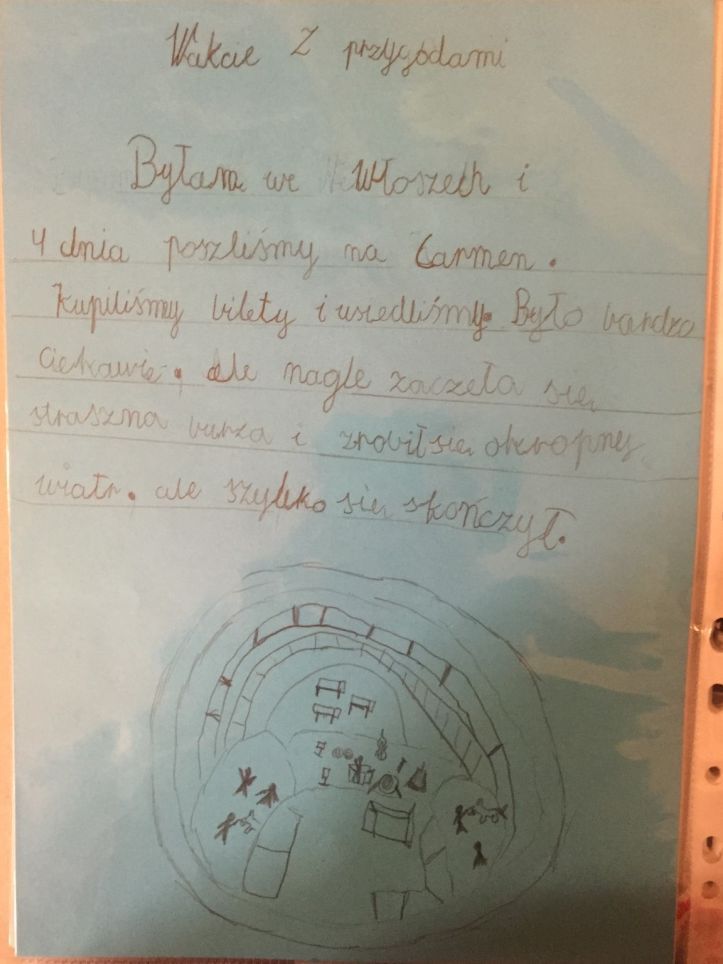 Wakacje z przygodami
Byłam we Włoszech i
4 dnia poszliśmy na Carmen.
Kupiliśmy bilety i usiedliśmy. Było bardzo
ciekawie, ale nagle zaczeła się
straszna burza i zrobił się okropny
wiatr. ale szybko się skończył.